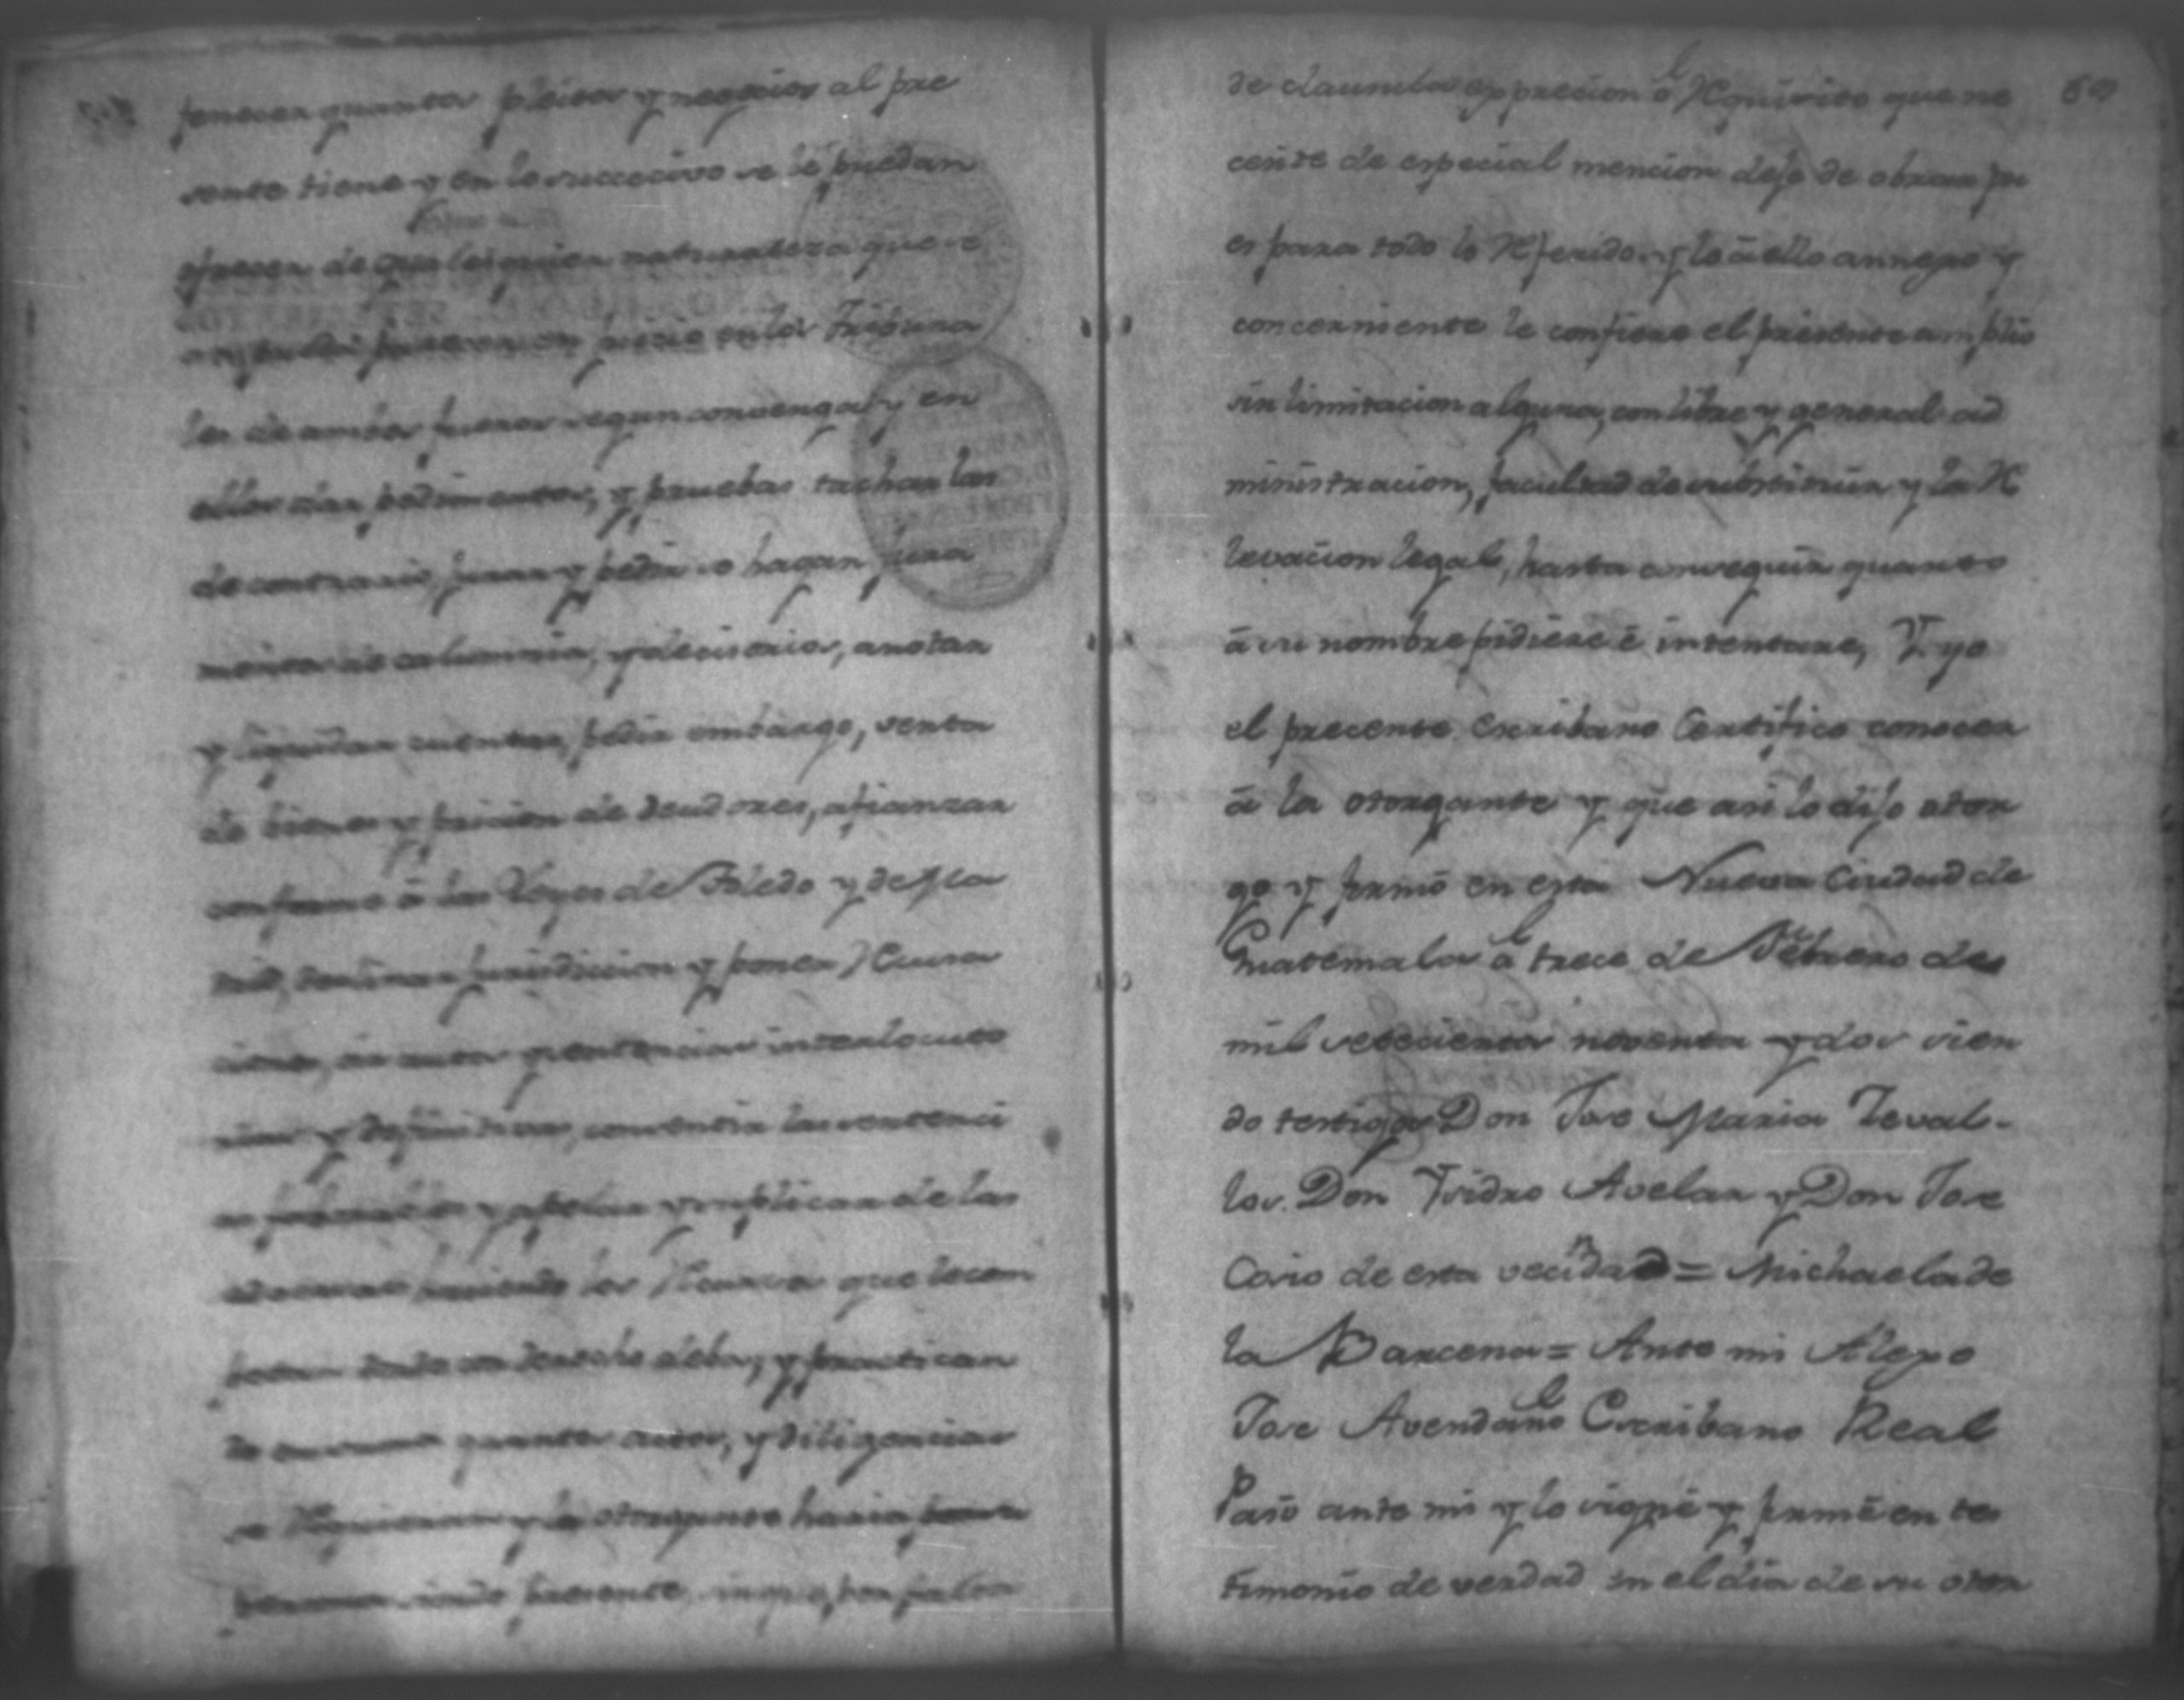 fenecer quantos pleitos y negocios al pre
sente tiene y en lo succecivo se le puedan
ofrecer de qualesquiera naturaleza que se
juicio en los Tribuna
les de ambos fueros segun convenga y en
ellos dar pedimentos, y pruebas tachar las
de contrario, jurar y pedir se hagan jura
mentos de calumnia, y decisorios, anotar
y liquidar cuentas, pedir embargo, venta
de bienes y pricion de deudores, afianzar
conforme á las Leyes de Toledo y de Ma
drid, declinar jurisdiccion y poner Recusa
ciones, oir autos y sentencias interlocuto
rias y definitivas, consentir las sentenci
as favorables y apelar y suplicar de las
los Recursos que
derecho deba, y practican
do quantos actos, y diligencias
se Requieran y la otorgante haria
siendo presente, sin que por falta
de clausula exprecion o Requisito que ne
cesite de especial mencion deje de obrar pu
es para todo lo Referido y lo á ello annexo y
concerniente le confiere el presente amplio
sin limitacion alguna, con libre y general ad
ministracion, facultad de substituir y la Re
levacion legal, hasta conseguir quanto
á su nombre pidiere é intentare, Y yo
el precente Escribano Certifico conocer
á la otorgante y que asi lo dijo otor
go y firmó en esta Nueva Ciudad de
Guatemala á trece de Febrero de
mil setecientos noventa y dos sien
do testigos Don Jose Maria Zeval-
los. Don Ysidro Avelar y Don Jose
Cosio de esta vecindad = Michaela de
la Barcena = Ante mi Alexo
Jose Avendaño Escribano Real
Pasó ante mi y lo signé y firmé en tes
timonio de verdad en el dia de su otor